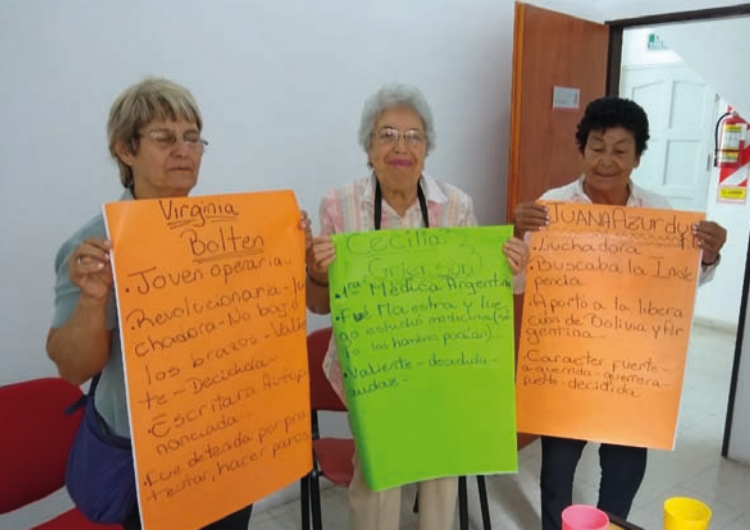 Virginia
Bolten
• Joven operaria..
Revolucionaria - lu
chadora - No bajó
los brazos - Valien
te - Decidida -
Escritora Autop
nanciada -
• Fue detenida por pro
testar, hacer paros
Cecilia
Grierson
• 1ra Médica Argentin
• Fue Maestra y lue
go estudió medicina (só
lo los hombres podían)...
• Valiente - decidida -
audaz -
JUANA Azurduy
• Luchadora
• Buscaba la Inde
pencia
• Aportó a la libera
ción de Bolivia y Ar
gentina -
• Carácter fuerte -
aguerrida - guerrera -
fuerte - decidida